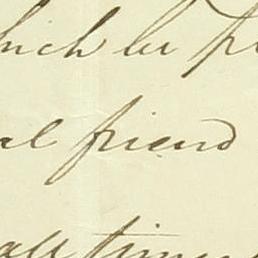 hich he
al friend
all times